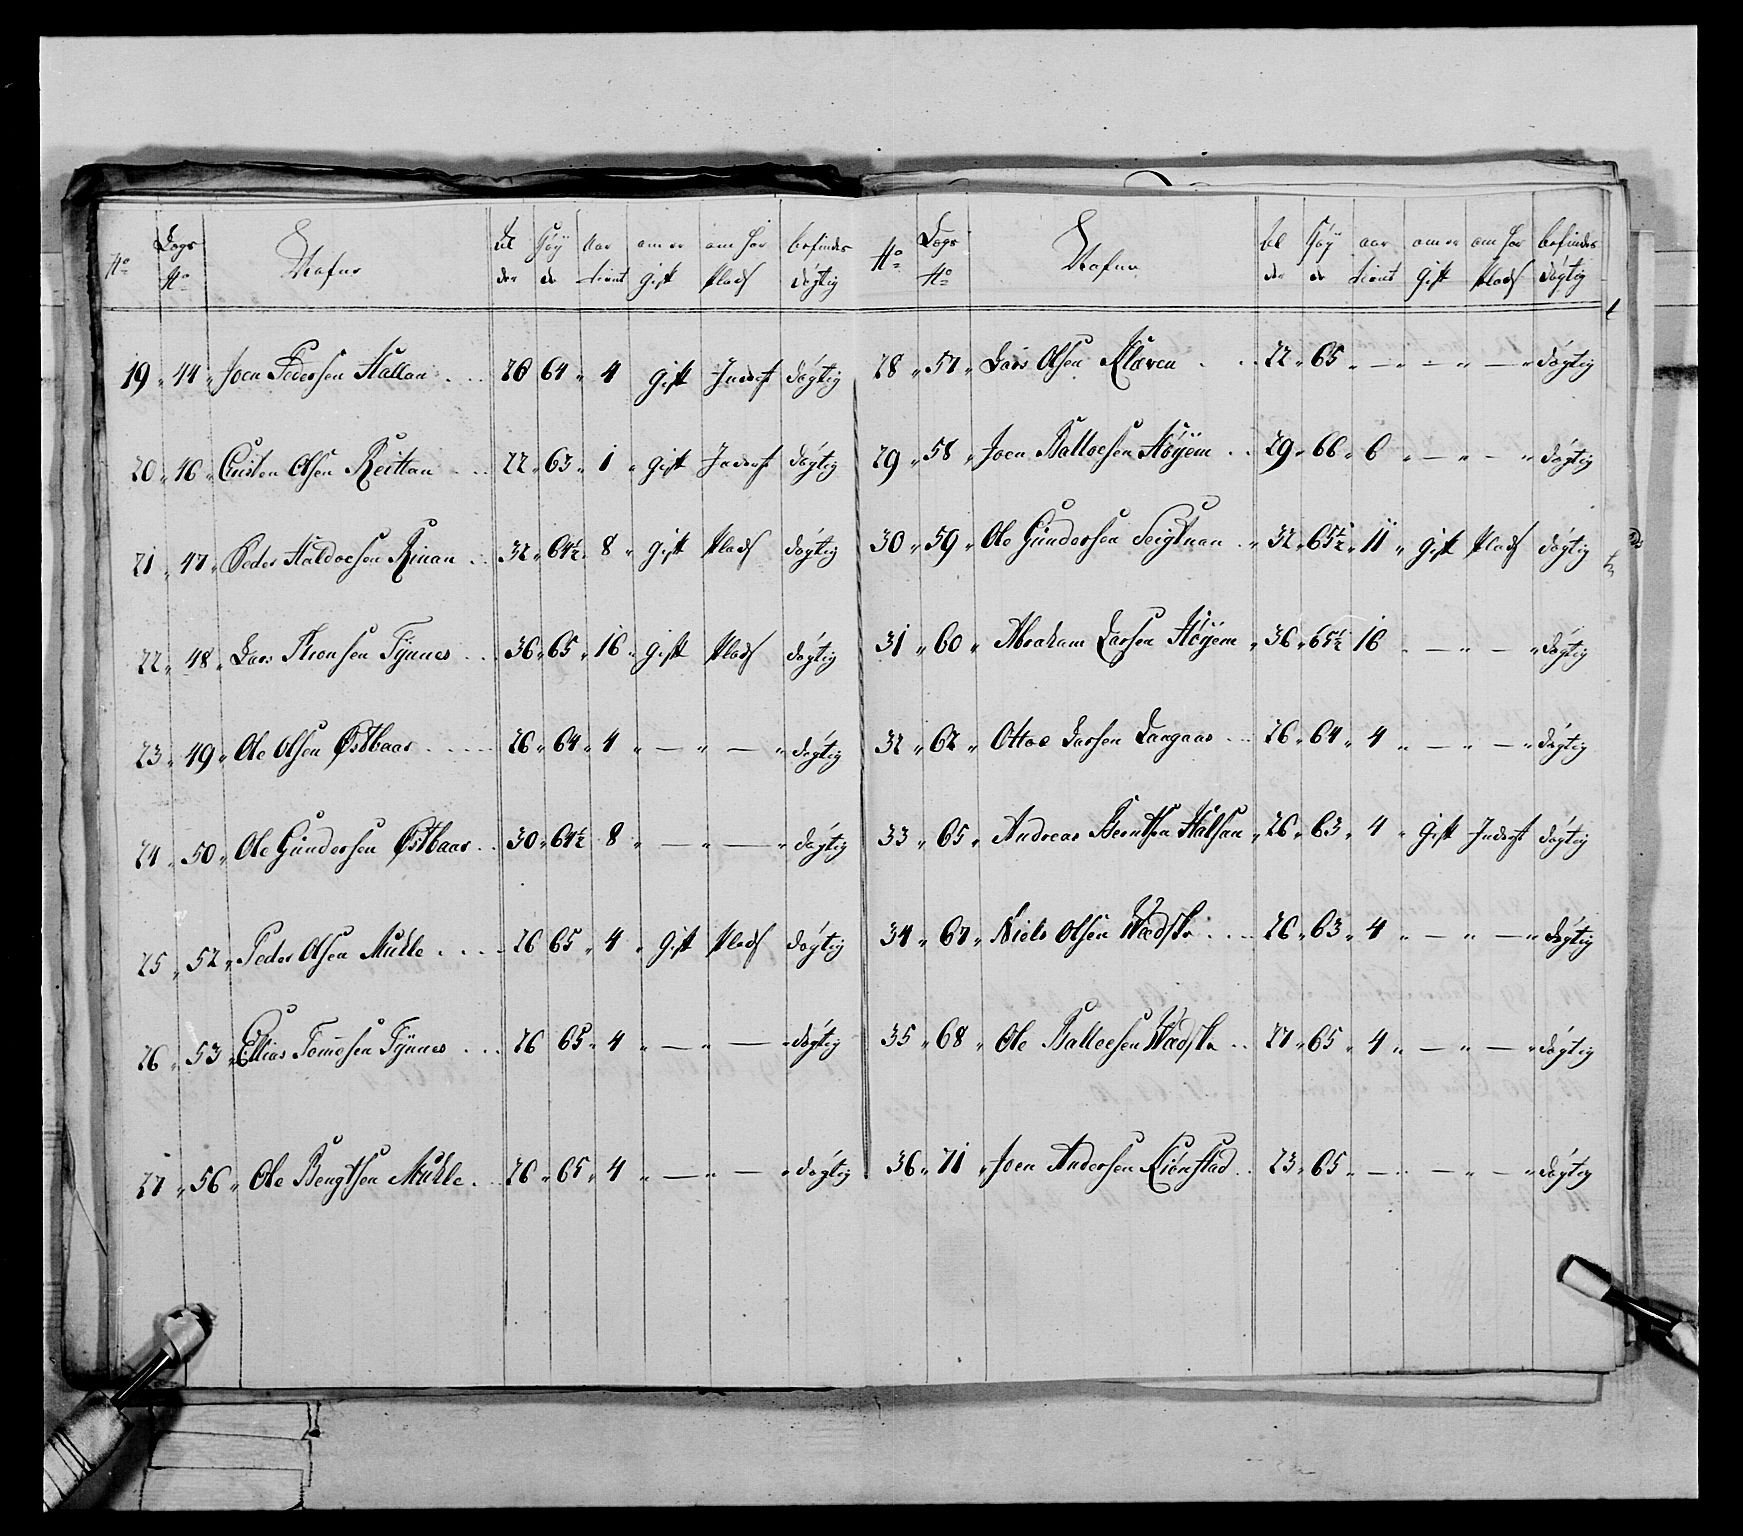 No Lægs No Nafne Al der Høy de Aar tient om er gift om har Plads befindes døgtig
19 " 44 " Joen Pedersen Hallan . . . 26 64 " 4 gift Inderst døgtig
20 " 46 " Cristen Olsen Reittan . . . 22 " 63 " 1 " gift Inderst døgtig
21 " 47 " Peder Haldoesen Rinan . . 32 " 64½ " 8 " gift Plads døgtig
22 " 48 " Lars Thronsen Fynnes . . . 36 " 65 " 16 " gift Plads døgtig
23 " 49 " Ole Olsen Østbaar . . . . . 26 " 64 " 4 " — " — " døgtig
24 " 50 " Ole Gundersen Østbaar . . 30 " 64½ 8 " — " — " døgtig
25 " 52 " Peder Olsen Mükle . . . . 26 65 " 4 " gift Plads døgtig
26 " 53 " Ellias Tomesen Fynnes . . . 26 65 " 4 " — " — " døgtig
27 " 56 " Ole Bengtsen Mükle . . 26 " 65 " 4 " — " — " døgtig
No Lægs No Nafne al der Høy de aar tient om er gift om har Plads befindes døgtig
28 " 57 " Lars Olsen Kleven . . . 22 " 65 " — " — " — " døgtig
29 " 58 " Joen Balloesen Høyem . . 29 " 66 " 6 " — " — " døgtig
30 " 59 " Ole Gundersen Seigtnan . " 32 " 65½ " 11 " gift Plads døgtig
31 " 60 " Abraham Larsen Høyem " 36 " 65½ 16 " — " — " døgtig
32 " 62 " Ottoe Larsen Langaar . . . 26 " 64 " 4 " — " — " døgtig
33 " 65 " Andreas Berntsen Halsan " 26 " 63 " 4 " gift Inderst døgtig
34 " 67 " Niels Olsen . . . . 26 " 63 " 4 " — " — " døgtig
35 " 68 " Ole Balloesen . . 27 " 65 " 4 " — " — " døgtig
36 " 71 " Joen Andersen Kiønstad . . 23 " 65 " — " — " — " døgtig